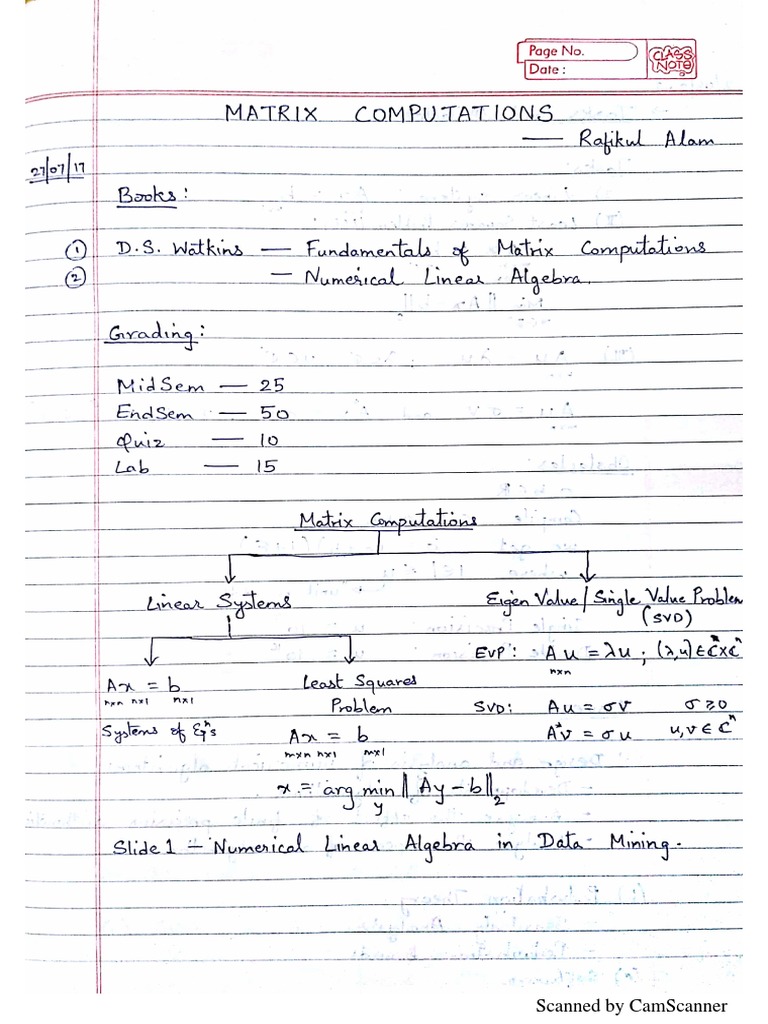 Page No.
Date :
CLASS
NOTE
MATRIX COMPUTATIONS
— Rafikul Alam
27/07/17
Books :
① D.S. Watkins — Fundamentals of Matrix Computations
② — Numerical Linear Algebra.
Grading :
MidSem — 25
EndSem — 50
Quiz — 10
Lab — 15
Matrix Computations
Linear Systems
Eigen Value / Single Value Problem
(SVD)
EVP : A u = λu ; (λ,u) ∈ C^n × C^n
n×n
Ax = b
n×n n×1 n×1
Systems of Eq^n's
Least Squares
Problem
Ax = b
m×n n×1 m×1
SVD: Au = σv σ ≥ 0
A*v = σu u, v ∈ C^n
x := arg min ‖ Ay − b ‖₂
y
Slide 1 — Numerical Linear Algebra in Data Mining.
Scanned by CamScanner